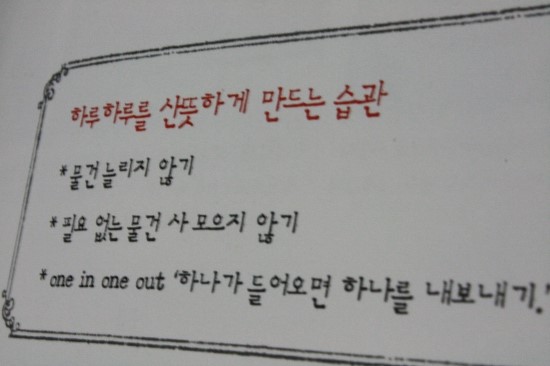 하루하루를 산뜻하게 만드는 습관
*물건늘리지 않기
*필요 없는 물건 사 모으지 않기
*one in one out '하나가 들어오면 하나를 내보내기.'